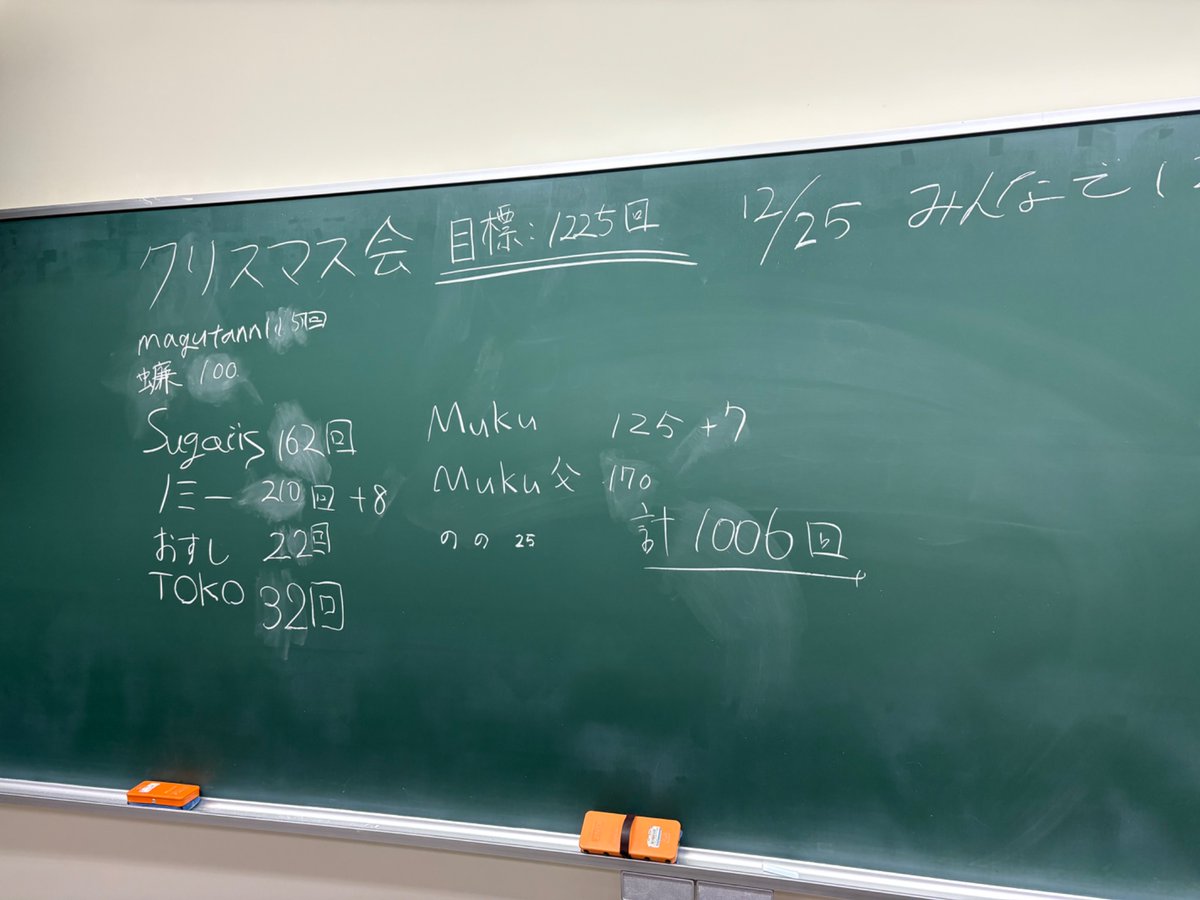 クリスマス会 目標:1225回 12/25 みんなで
magutann 115回
蠊 100
Sugariis 162回 Muku 125 +7
ノミー 210回 +8 Muku父 170
おすし 22回 のの 25 計1006回
TOKO 32回